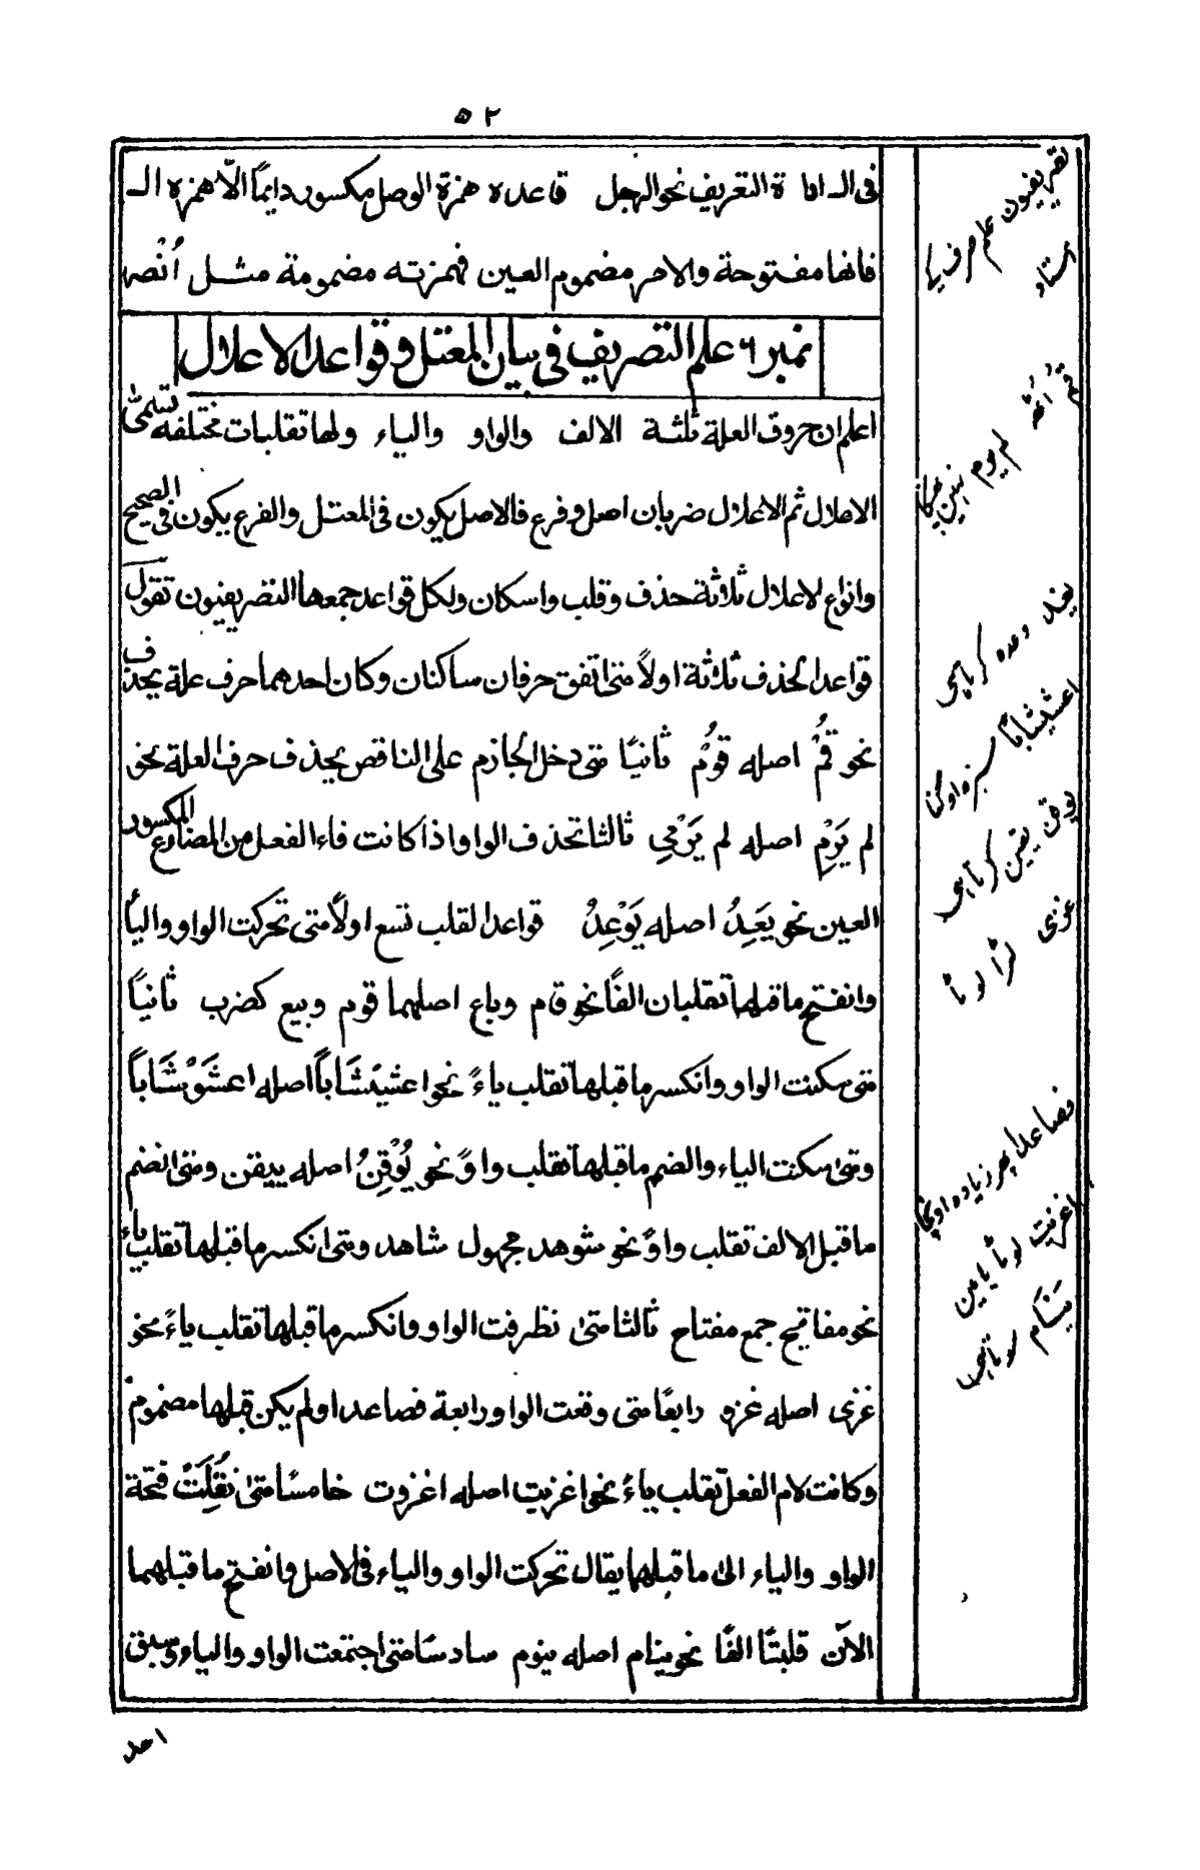 ۵۲
فى الـ اداة التعريف نحو الرجل قاعده همزة الوصل مكسور دايمًا الّا همزه الـ
فانها مفتوحة والامر مضموم العين فهمزته مضمومة مثل اُنْصر
نمبر ۶ علم التصريف فى بيان المعتل وقواعد الاعلال
اعلم ان حروف العلة ثلثة الالف والواو والياء ولها تقلبات مختلفه تسمىٰ
الاعلال ثم الاعلال ضربان اصل وفرع فالاصل يكون فى المعتل والفرع يكون فى الصحيح
وانواع الاعلال ثلاثة حذف وقلب واسكان ولكل قواعد جمعها التصريفيون تقول
قواعد الحذف ثلاثة اولاً متى اتفق حرفان ساكنان وكان احدهما حرف علة يحذف
نحو قُمْ اصله قوُمْ ثانيًا متى دخل الجازم على الناقص يحذف حرف العلة نحو
لم يَرْمِ اصله لم يَرْمِي ثالثا تحذف الواو اذا كانت فاء الفعل من المضارع المكسور
العين نحو يَعِدُ اصله يَوْعِدُ قواعد القلب تسع اولاً متى تحركت الواو والياء
وانفتح ما قبلها تقلبان الفًا نحو قام وباع اصلهما قوم وبيع كضرب ثانيًا
متى سكنت الواو وانكسر ما قبلها تقلب ياءً نحو اعشيشَاباً اصله اعشَوْشَاباً
ومتى سكنت الياء والضم ما قبلها تقلب واوً نحو يُوْقِنُ اصله ييقن ومتى انضم
ما قبل الالف تقلب واوً نحو شوهد مجهول شاهد ومتى انكسر ما قبلها تقلب ياء
نحو مفاتيح جمع مفتاح ثالثا متى تطرفت الواو وانكسر ما قبلها تقلب ياءً نحو
غزى اصله غزو رابعًا متى وقعت الواو رابعة فصاعدا ولم يكن قبلها مضموم
وكانت لام الفعل تقلب ياءً نحو اغزيت اصله اغزوت خامسًا متى نُقِلَتْ فتحة
الواو والياء الى ما قبلها يقال تحركت الواو والياء فى الاصل وانفتح ما قبلهما
الآن قلبتًا الفًا نحو ينام اصله ينوم سادسًا متى اجتمعت الواو والياء وسبق
احد
تصريفيون علم صرف
استاد
لم يرم نہیں پھینکا
يعد وعده كرتا ہی
اعشيشابًا سبزه اوگنا
يوقن يقين كرتا ہی
غزى لڑا
فصاعدا پھر زياده اونچا
اغزيت
ينَام سوتا ہی